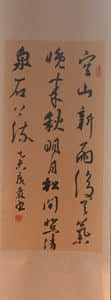 空山新雨後天氣
晚来秋明月松间照清
泉石上流